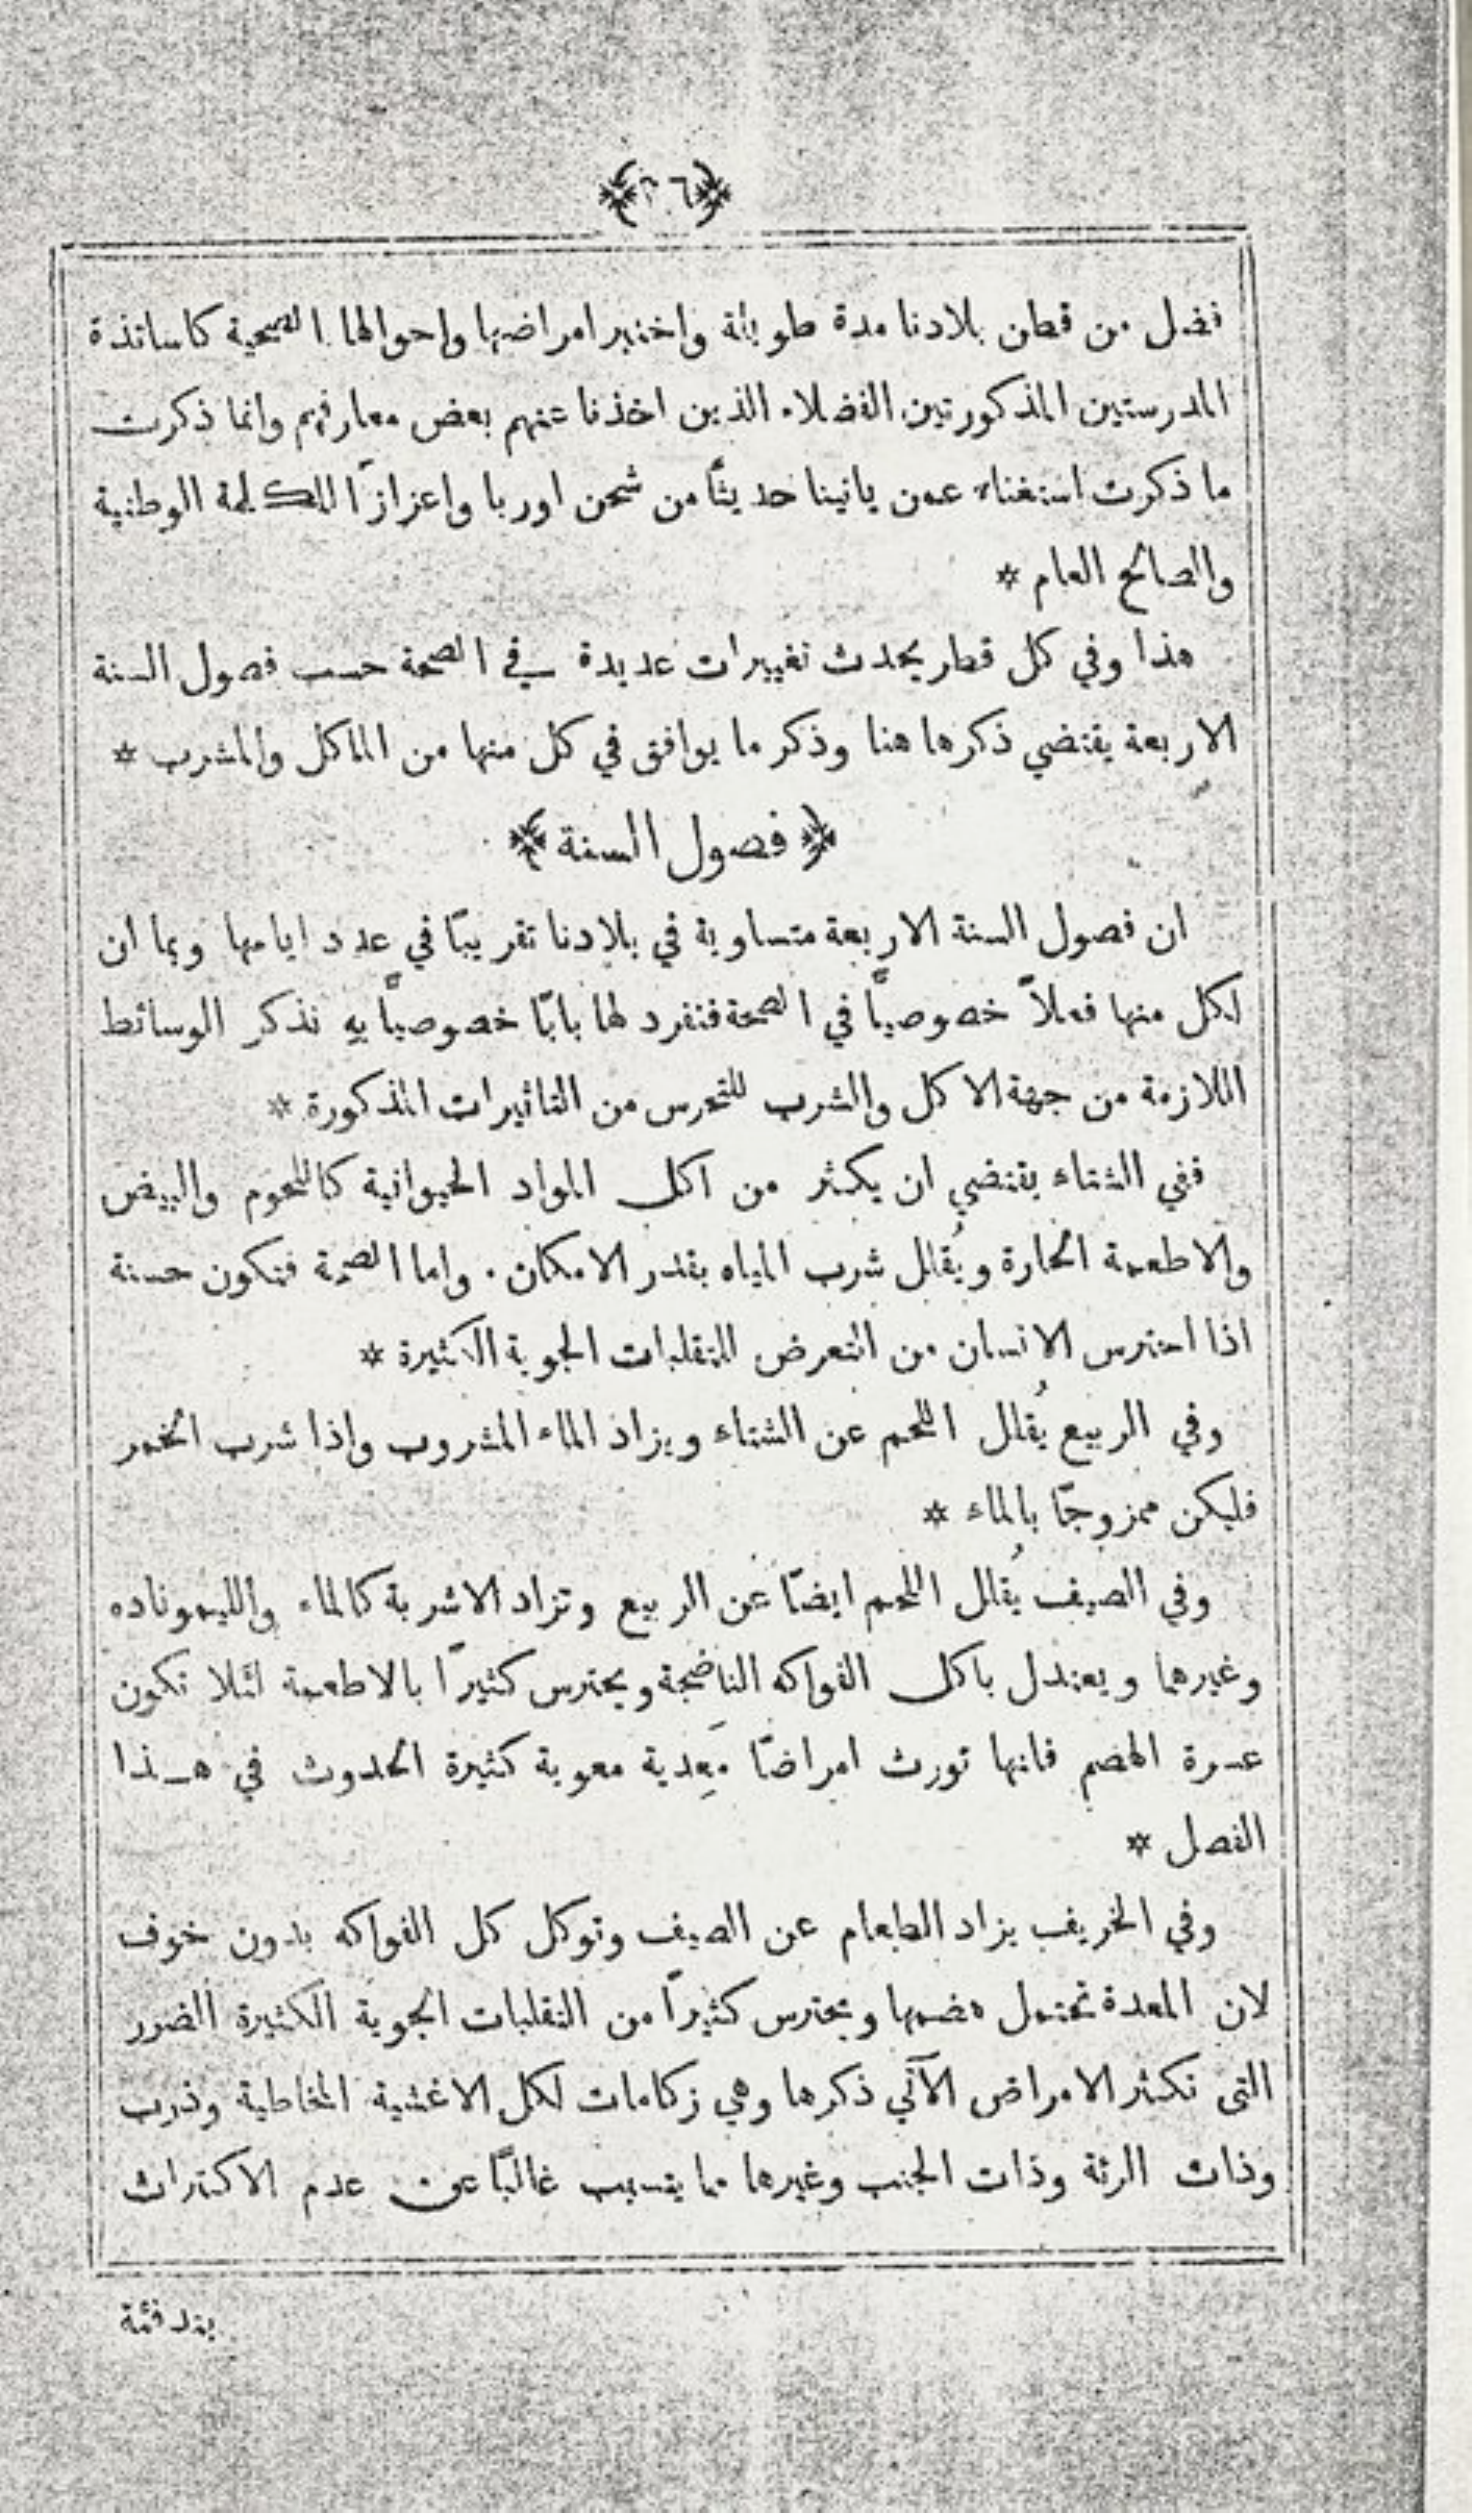 ﴿٢٦﴾
فضل من قطن بلادنا مدة طويلة واختبر امراضها واحوالها الصحية كاساتذة
المدرستين المذكورتين الفضلاء الذين اخذنا عنهم بعض معارفهم وانما ذكرت
ما ذكرت استغناء عمن ياتينا حديثًا من شحن اوربا واعزازًا للكلمة الوطنية
والصالح العام *
هذا وفي كل قطر يحدث تغييرات عديدة في الصحة حسب فصول السنة
الاربعة يقتضي ذكرها هنا وذكر ما يوافق في كل منها من الماكل والمشرب *
﴿ فصول السنة ﴾
ان فصول السنة الاربعة متساوية في بلادنا تقريبًا في عدد ايامها وبما ان
لكل منها فعلاً خصوصيًّا في الصحة فنفرد لها بابًا خصوصيًّا به نذكر الوسائط
اللازمة من جهة الاكل والشرب للتحرس من التاثيرات المذكورة *
ففي الشتاء يقتضي ان يكثر من اكل المواد الحيوانية كاللحوم والبيض
والاطعمة الحارة ويُقلل شرب المياه بقدر الامكان . واما الصحة فتكون حسنة
اذا احترس الانسان من التعرض للتقلبات الجوية الكثيرة *
وفي الربيع يُقلل اللحم عن الشتاء ويزاد الماء المشروب واذا شرب الخمر
فليكن ممزوجًا بالماء *
وفي الصيف يُقلل اللحم ايضًا عن الربيع وتزاد الاشربة كالماء والليموناده
وغيرهما ويعتدل باكل الفواكه الناضجة ويحترس كثيرًا بالاطعمة لئلا تكون
عسرة الهضم فانها تورث امراضًا مَعِدية معوية كثيرة الحدوث في هـذا
الفصل *
وفي الخريف يزاد الطعام عن الصيف وتوكل كل الفواكه بدون خوف
لان المعدة تحتمل هضمها ويحترس كثيرًا من التقلبات الجوية الكثيرة الضرر
التي تكثر الامراض الآتي ذكرها وهي زكامات لكل الاغشية المخاطية وذرب
وذات الرئة وذات الجنب وغيرها مما يتسبب غالبًا عن عدم الاكتراث
بتدفئة